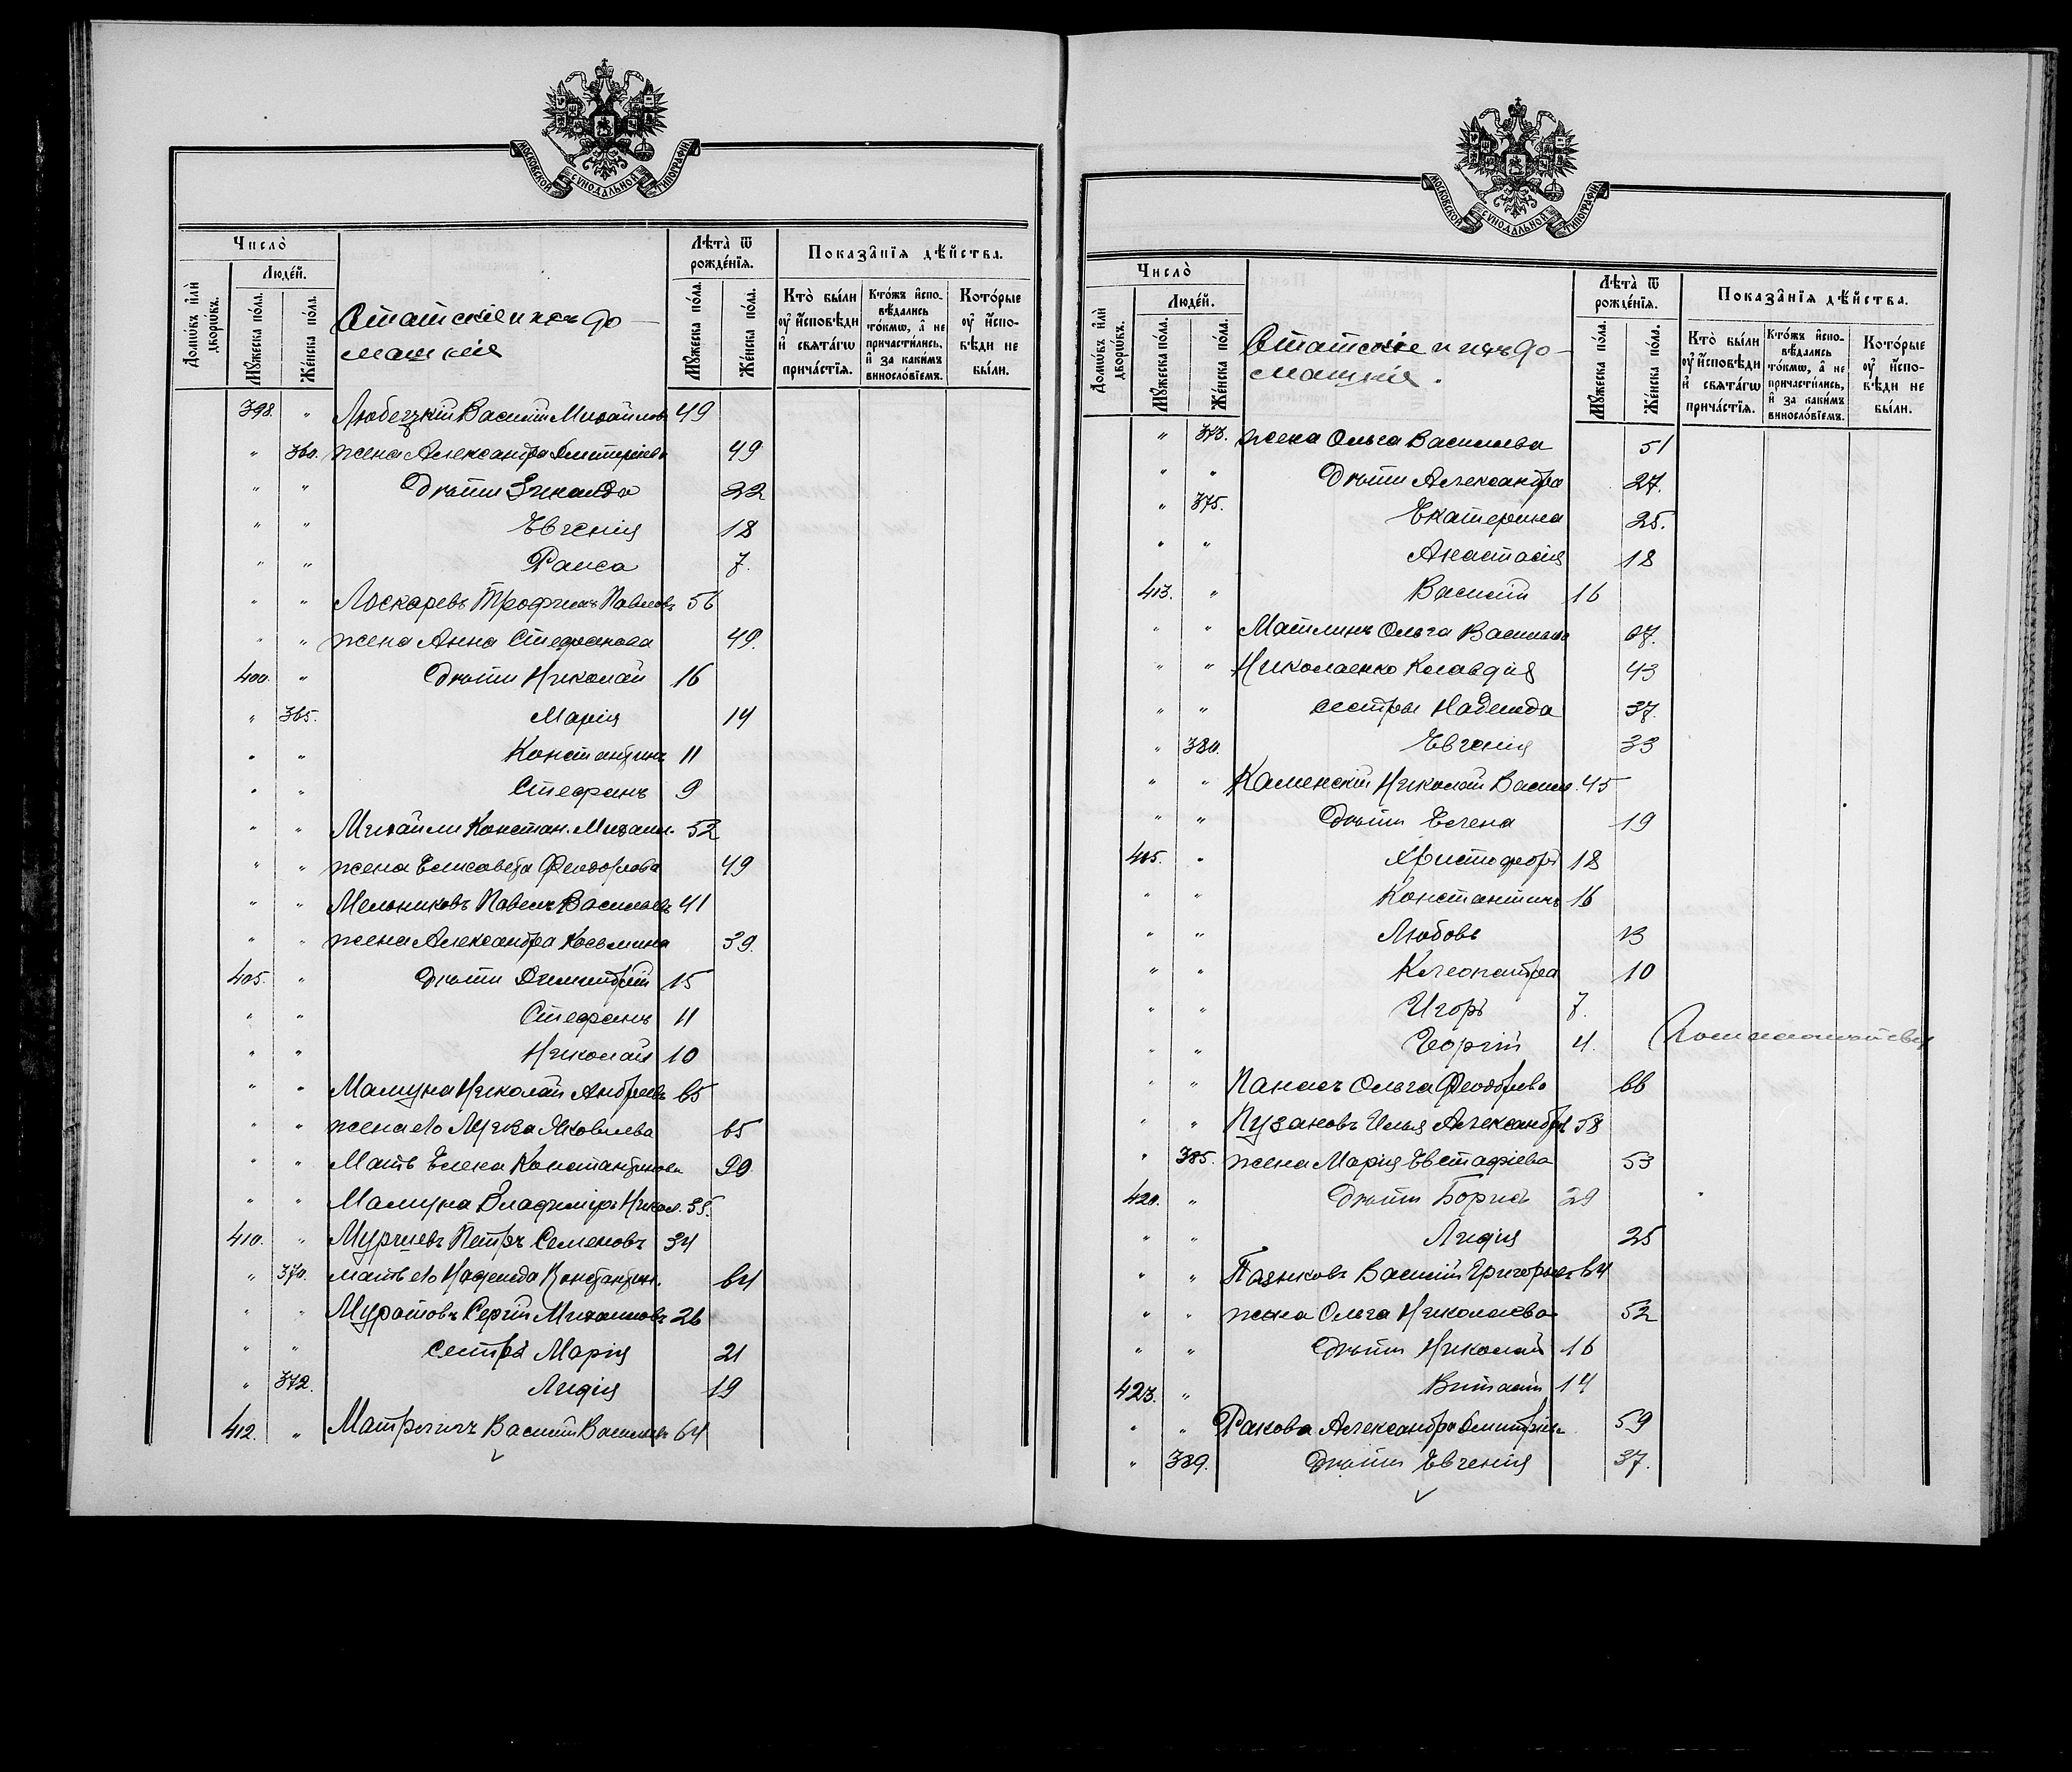 МОСКОВСКОЙ СУНОДАЛЬНОЙ ТИПОГРАФІИ
Число̀
Лѣта̀ ѿ рожде́нїѧ.
Показа̑нїѧ дѣ́йства.
Домѡ́въ и҆лѝ дворѡ́въ.
Люде́й.
Мꙋ́жеска по́ла.
Же́нска по́ла.
Статскіе и ихъ до-
машнія
Мꙋ́жеска по́ла.
Же́нска по́ла.
Кто̀ бы́ли ᲂу҆ и҆́сповѣди и҆ свѧта́гѡ прича́стїѧ.
Кто́жъ и҆спо-вѣ́дались то́кмѡ, а҆ не причасти́лись, и҆ за каки́мъ виносло́вїемъ.
Кото́рые ᲂу҆ и҆́спо-вѣди не бы́ли.
398. " Любецкій Василій Михайловъ 49
" 360. жена Александра Дмитріева 49
" " дѣти Зинаида 22
" " Евгенія 18
" " Раиса 7.
" " Лоскаревъ Трофимъ Павловъ 56
" " жена Анна Стефанова 49.
400. " дѣти Николай 16
" 365. Марія 14
" " Константинъ 11
" " Стефанъ 9
" " Михайли Констан. Михаил. 52
" " жена Елисавета Феодорова 49
" " Мельниковъ Павелъ Васильевъ 41
" " жена Александра Косьмина 39.
405. " дѣти Димитрій 15
" " Стефанъ 11
" " Николай 10
" " Мамуна Николай Андреевъ 65
" " жена его Луиза Яковлева 65
" " Мать Елена Константинова 90
" " Мамуна Владиміръ Никол. 35.
410. " Петръ Семеновъ 34
" 370. мать его Надежда Константин. 64
" " Муратовъ Сергій Михаиловъ 26
" " сестры Марія 21
" 372. Лидія 19
412. " Василій Васильевъ 64
МОСКОВСКОЙ СУНОДАЛЬНОЙ ТИПОГРАФІИ
Число̀
Лѣта̀ ѿ рожде́нїѧ.
Показа̑нїѧ дѣ́йства.
Домѡ́въ и҆лѝ дворѡ́въ.
Люде́й.
Мꙋ́жеска по́ла.
Же́нска по́ла.
Статскіе и ихъ до-
машнія.
Мꙋ́жеска по́ла.
Же́нска по́ла.
Кто̀ бы́ли ᲂу҆ и҆́сповѣди и҆ свѧта́гѡ прича́стїѧ.
Кто́жъ и҆спо-вѣ́дались то́кмѡ, а҆ не причасти́лись, и҆ за каки́мъ виносло́вїемъ.
Кото́рые ᲂу҆ и҆́спо-вѣди не бы́ли.
" 373. жена Ольга Васильева 51
" " дѣти Александра 27.
" 375. Екатерина 25.
" " Анастасія 18
413. " Василій 16
" " Ольга Васильева
" " Николаенко Клавдія 43
" " сестры Надежда 37.
" 380. Евгенія 33
" " Каменскій Николай Васил. 45
" " дѣти Елена 19
415. " Христофоръ 18
" " Константинъ 16
" " Любовь 13
" " Клеопатра 10
" " Игорь 7.
" " Георгій 4.
" " Панасъ Ольга Феодорова 66
" " Пузановъ Илья Александр. 58
" 385. жена Марія Евстафіева 53
420. " дѣти Борисъ 29
" " Лидія 25
" " Василій Григорьевъ 64
" " жена Ольга Николаева 52
" " дѣти Николай 16
423. " Виталій 14
" " Ракова Александра Дмитріев. 59
" 389. дѣти Евгенія 37.